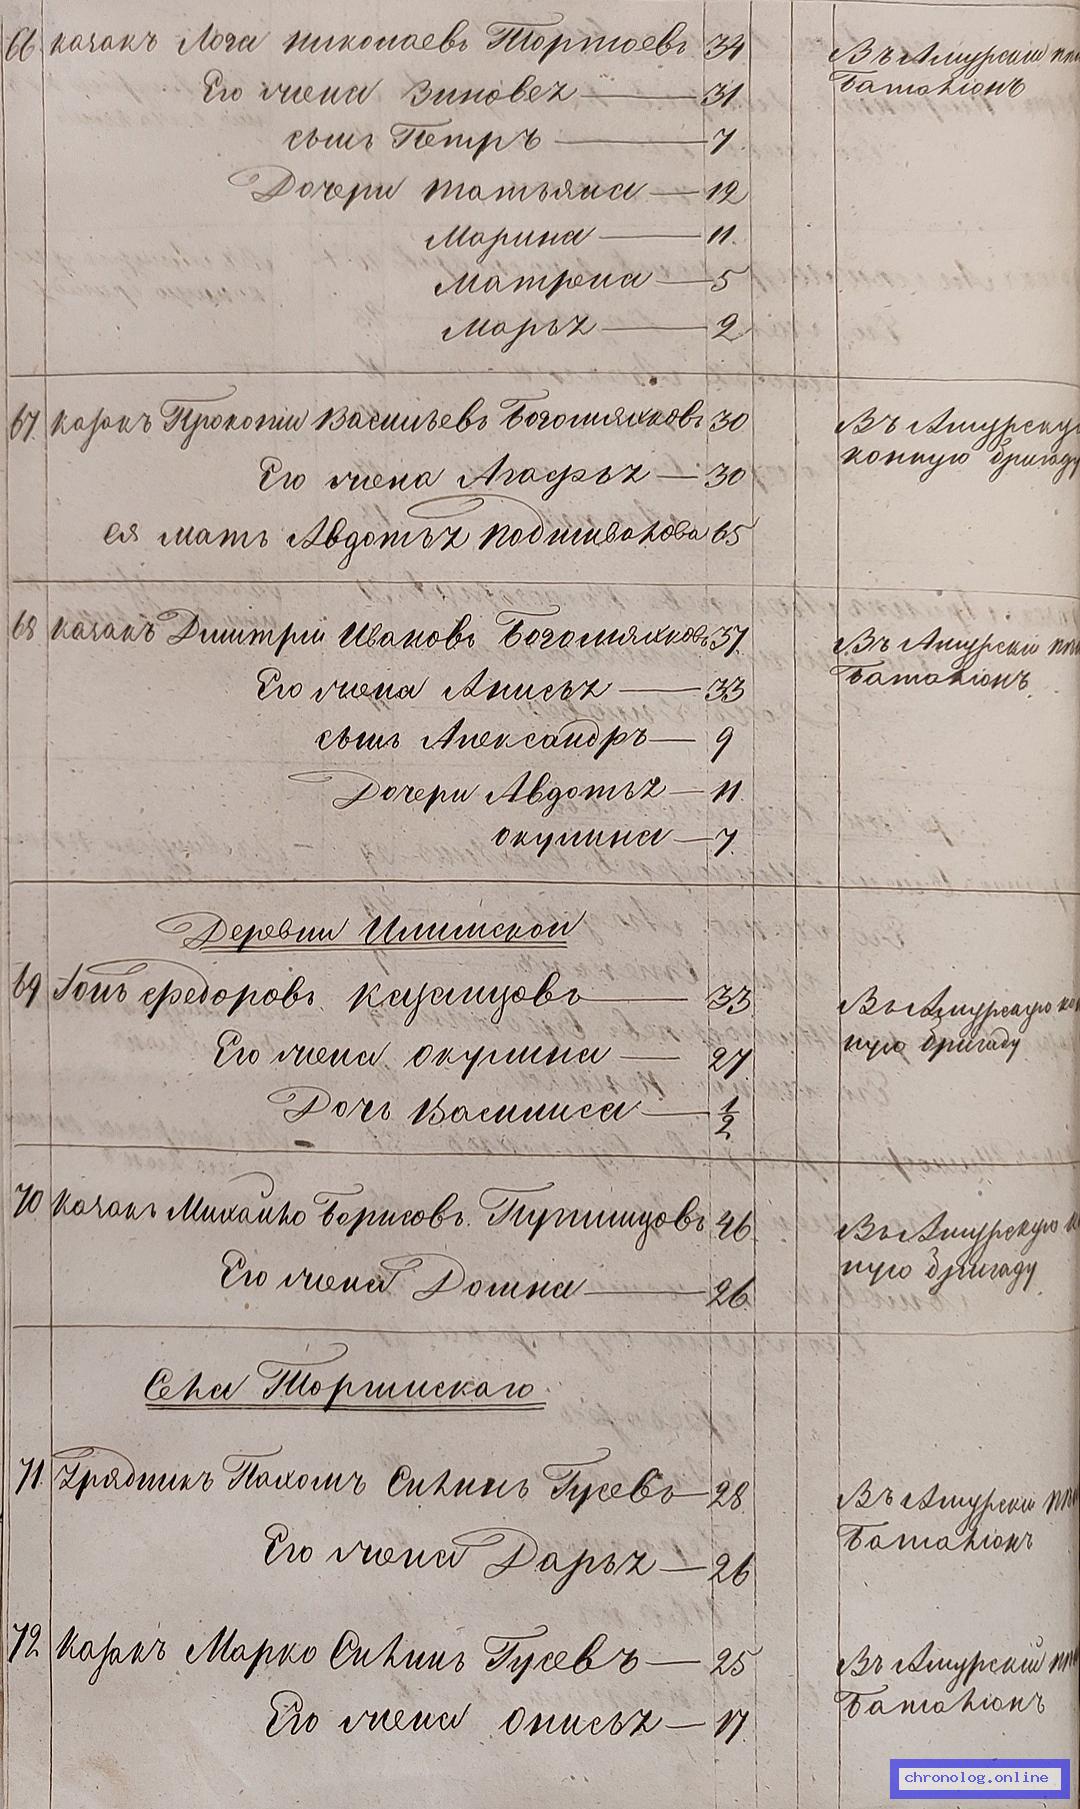 66 казакъ Лога Николаевъ Портоевъ 34 Въ Амурскій
Его жена Зиновея 31 Баталіонъ
сынъ Петръ 7
Дочери Татьяна 12
Марина 11
Матрена 5
Марья 2
67 казакъ Прокопій Васильевъ Богомяхковъ 30 Въ Амурскую
Его жена Агафья 30 конную бригаду
ея мать Авдотья Подшивалова 65
68 казакъ Дмитрій Ивановъ Богомяхковъ 37 Въ Амурскій
Его жена Анисья 33 Баталіонъ
сынъ Александръ 9
Дочери Авдотья 11
Окулина 7
Деревни Илимской
69 Гонъ Федоровъ Казанцовъ 33 Въ Амурскую кон
Его жена Окулина 27 ную бригаду
Дочь Василиса 1/2
70 казакъ Михайло Борисовъ 46 Въ Амурскую
Его жена Домна 26 ную бригаду
Села Торгинскаго
71 Урядникъ Пахомъ Силинъ Гусевъ 28 Въ Амурскій
Его жена Дарья 26 Баталіонъ
72 казакъ Марко Силинъ Гусевъ 25 Въ Амурскій
Его жена Онисья 17 Баталіонъ
chronolog.online